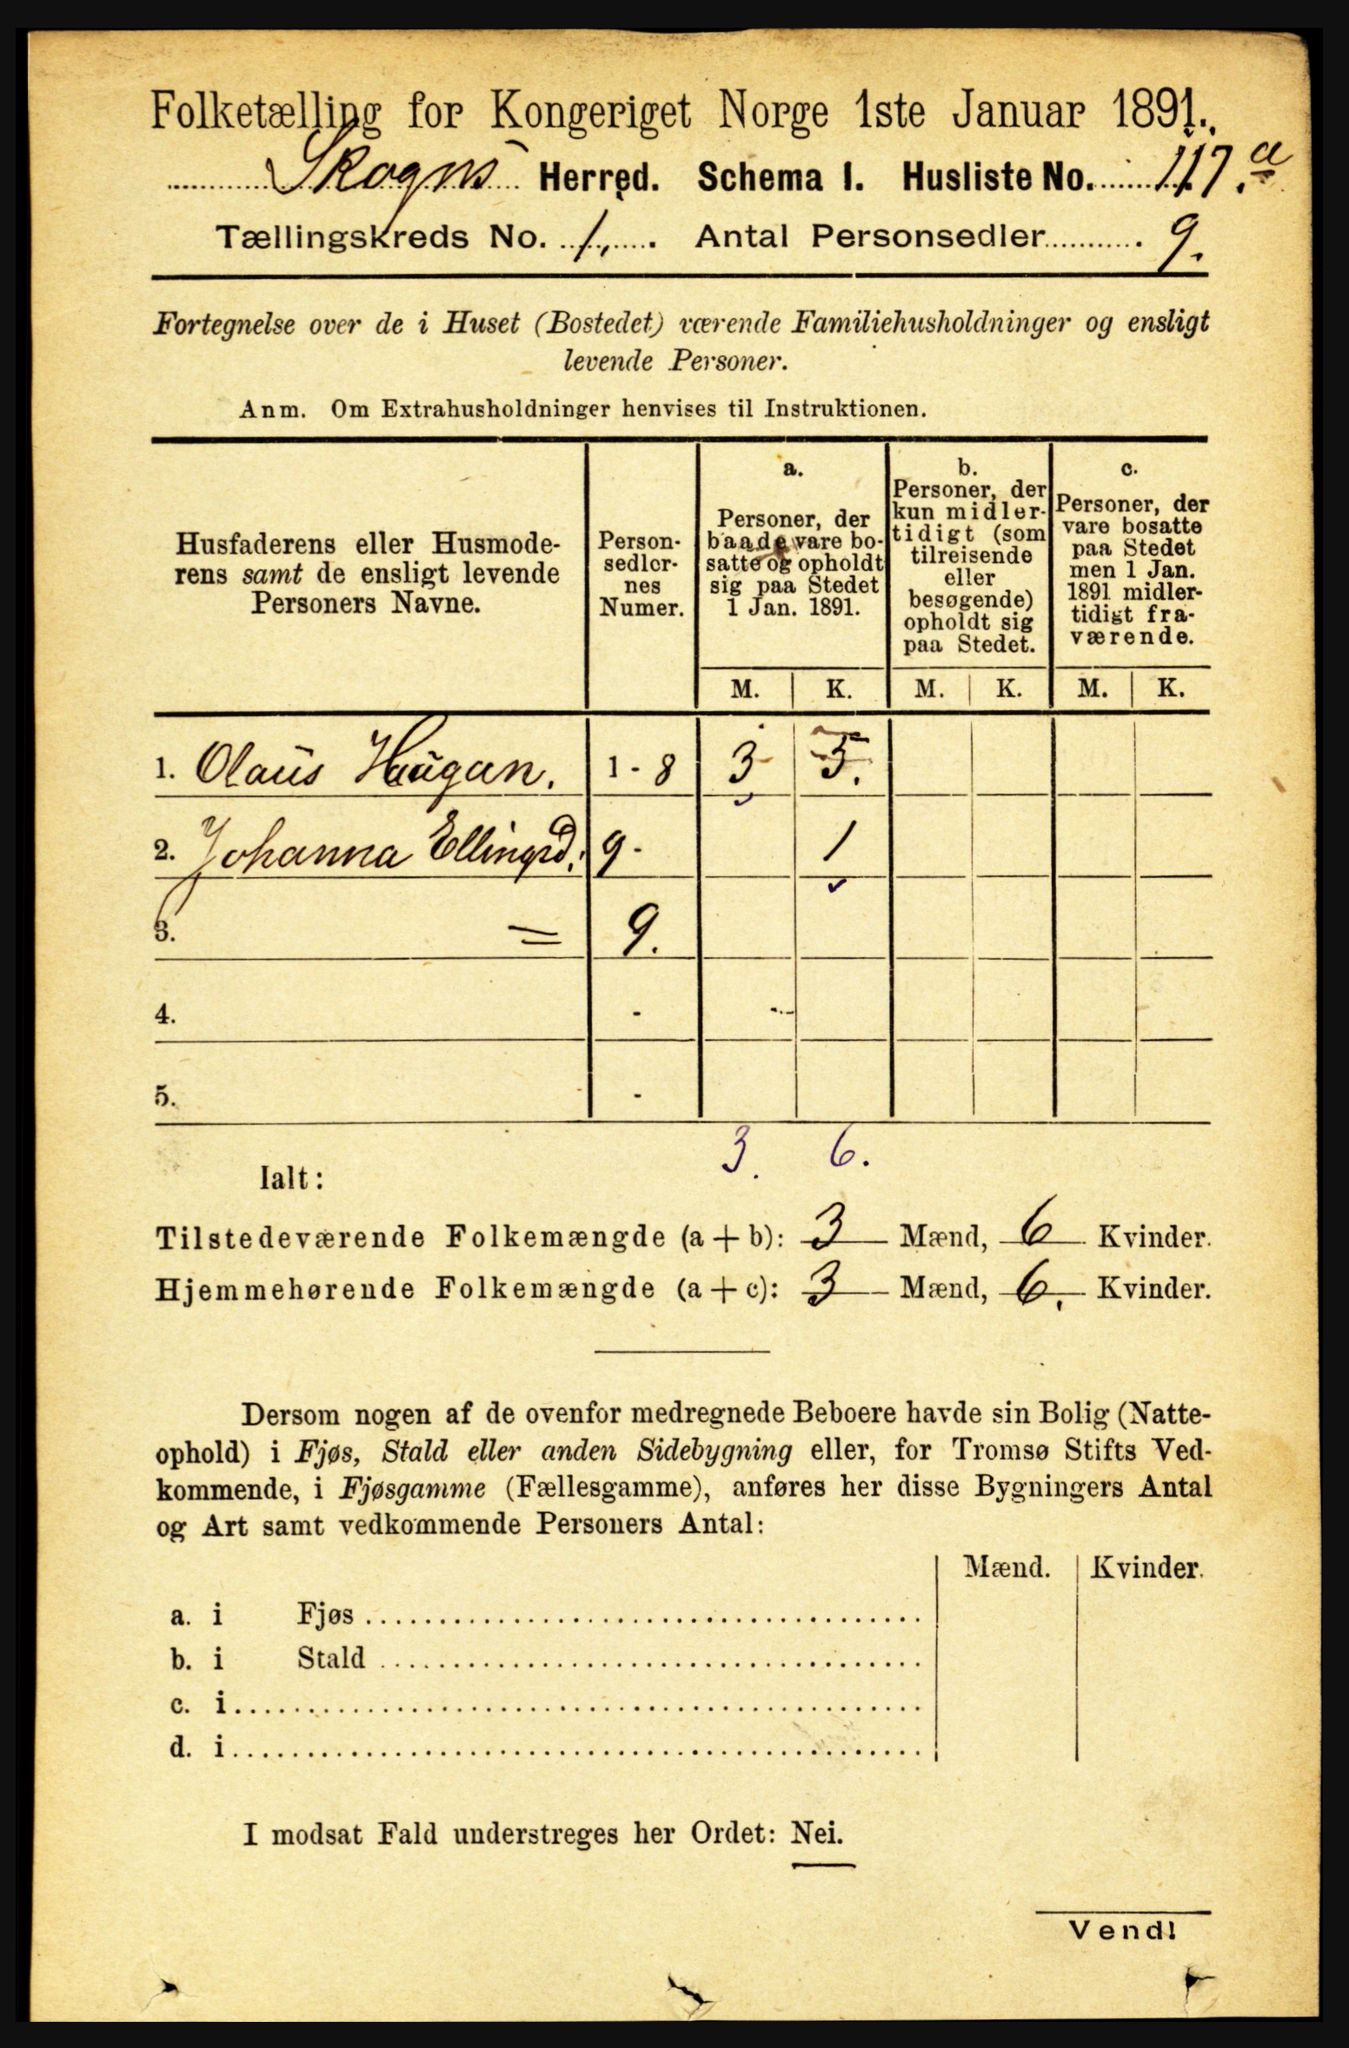 Folketælling for Kongeriget Norge 1ste Januar 1891.
Skogns Herred. Schema I. Husliste No. 117.a
Tællingskreds No. 1. Antal Personsedler 9.
Fortegnelse over de i Huset (Bostedet) værende Familiehusholdninger og ensligt
levende Personer.
Anm. Om Extrahusholdninger henvises til Instruktionen.
Husfaderens eller Husmode-
rens samt de ensligt levende
Personers Navne.
Person-
sedler-
nes
Numer.
a.
Personer, der
baade vare bo-
satte og opholdt
sig paa Stedet
1 Jan. 1891.
b.
Personer, der
kun midler-
tidigt (som
tilreisende
eller
besøgende)
opholdt sig
paa Stedet.
c.
Personer, der
vare bosatte
paa Stedet
men 1 Jan.
1891 midler-
tidigt fra-
værende.
M. K. M. K. M. K.
1. Olaus Haugan. 1-8 3 5.
2. Johanna Ellingsd. 9- 1
3. = 9.
4. -
5. -
3. 6.
Ialt:
Tilstedeværende Folkemængde (a + b): 3 Mænd, 6 Kvinder.
Hjemmehørende Folkemængde (a + c): 3 Mænd, 6. Kvinder.
Dersom nogen af de ovenfor medregnede Beboere havde sin Bolig (Natte-
ophold) i Fjøs, Stald eller anden Sidebygning eller, for Tromsø Stifts Ved-
kommende, i Fjøsgamme (Fællesgamme), anføres her disse Bygningers Antal
og Art samt vedkommende Personers Antal:
Mænd. Kvinder.
a. i Fjøs
b. i Stald
c. i
d. i
I modsat Fald understreges her Ordet: Nei.
Vend!